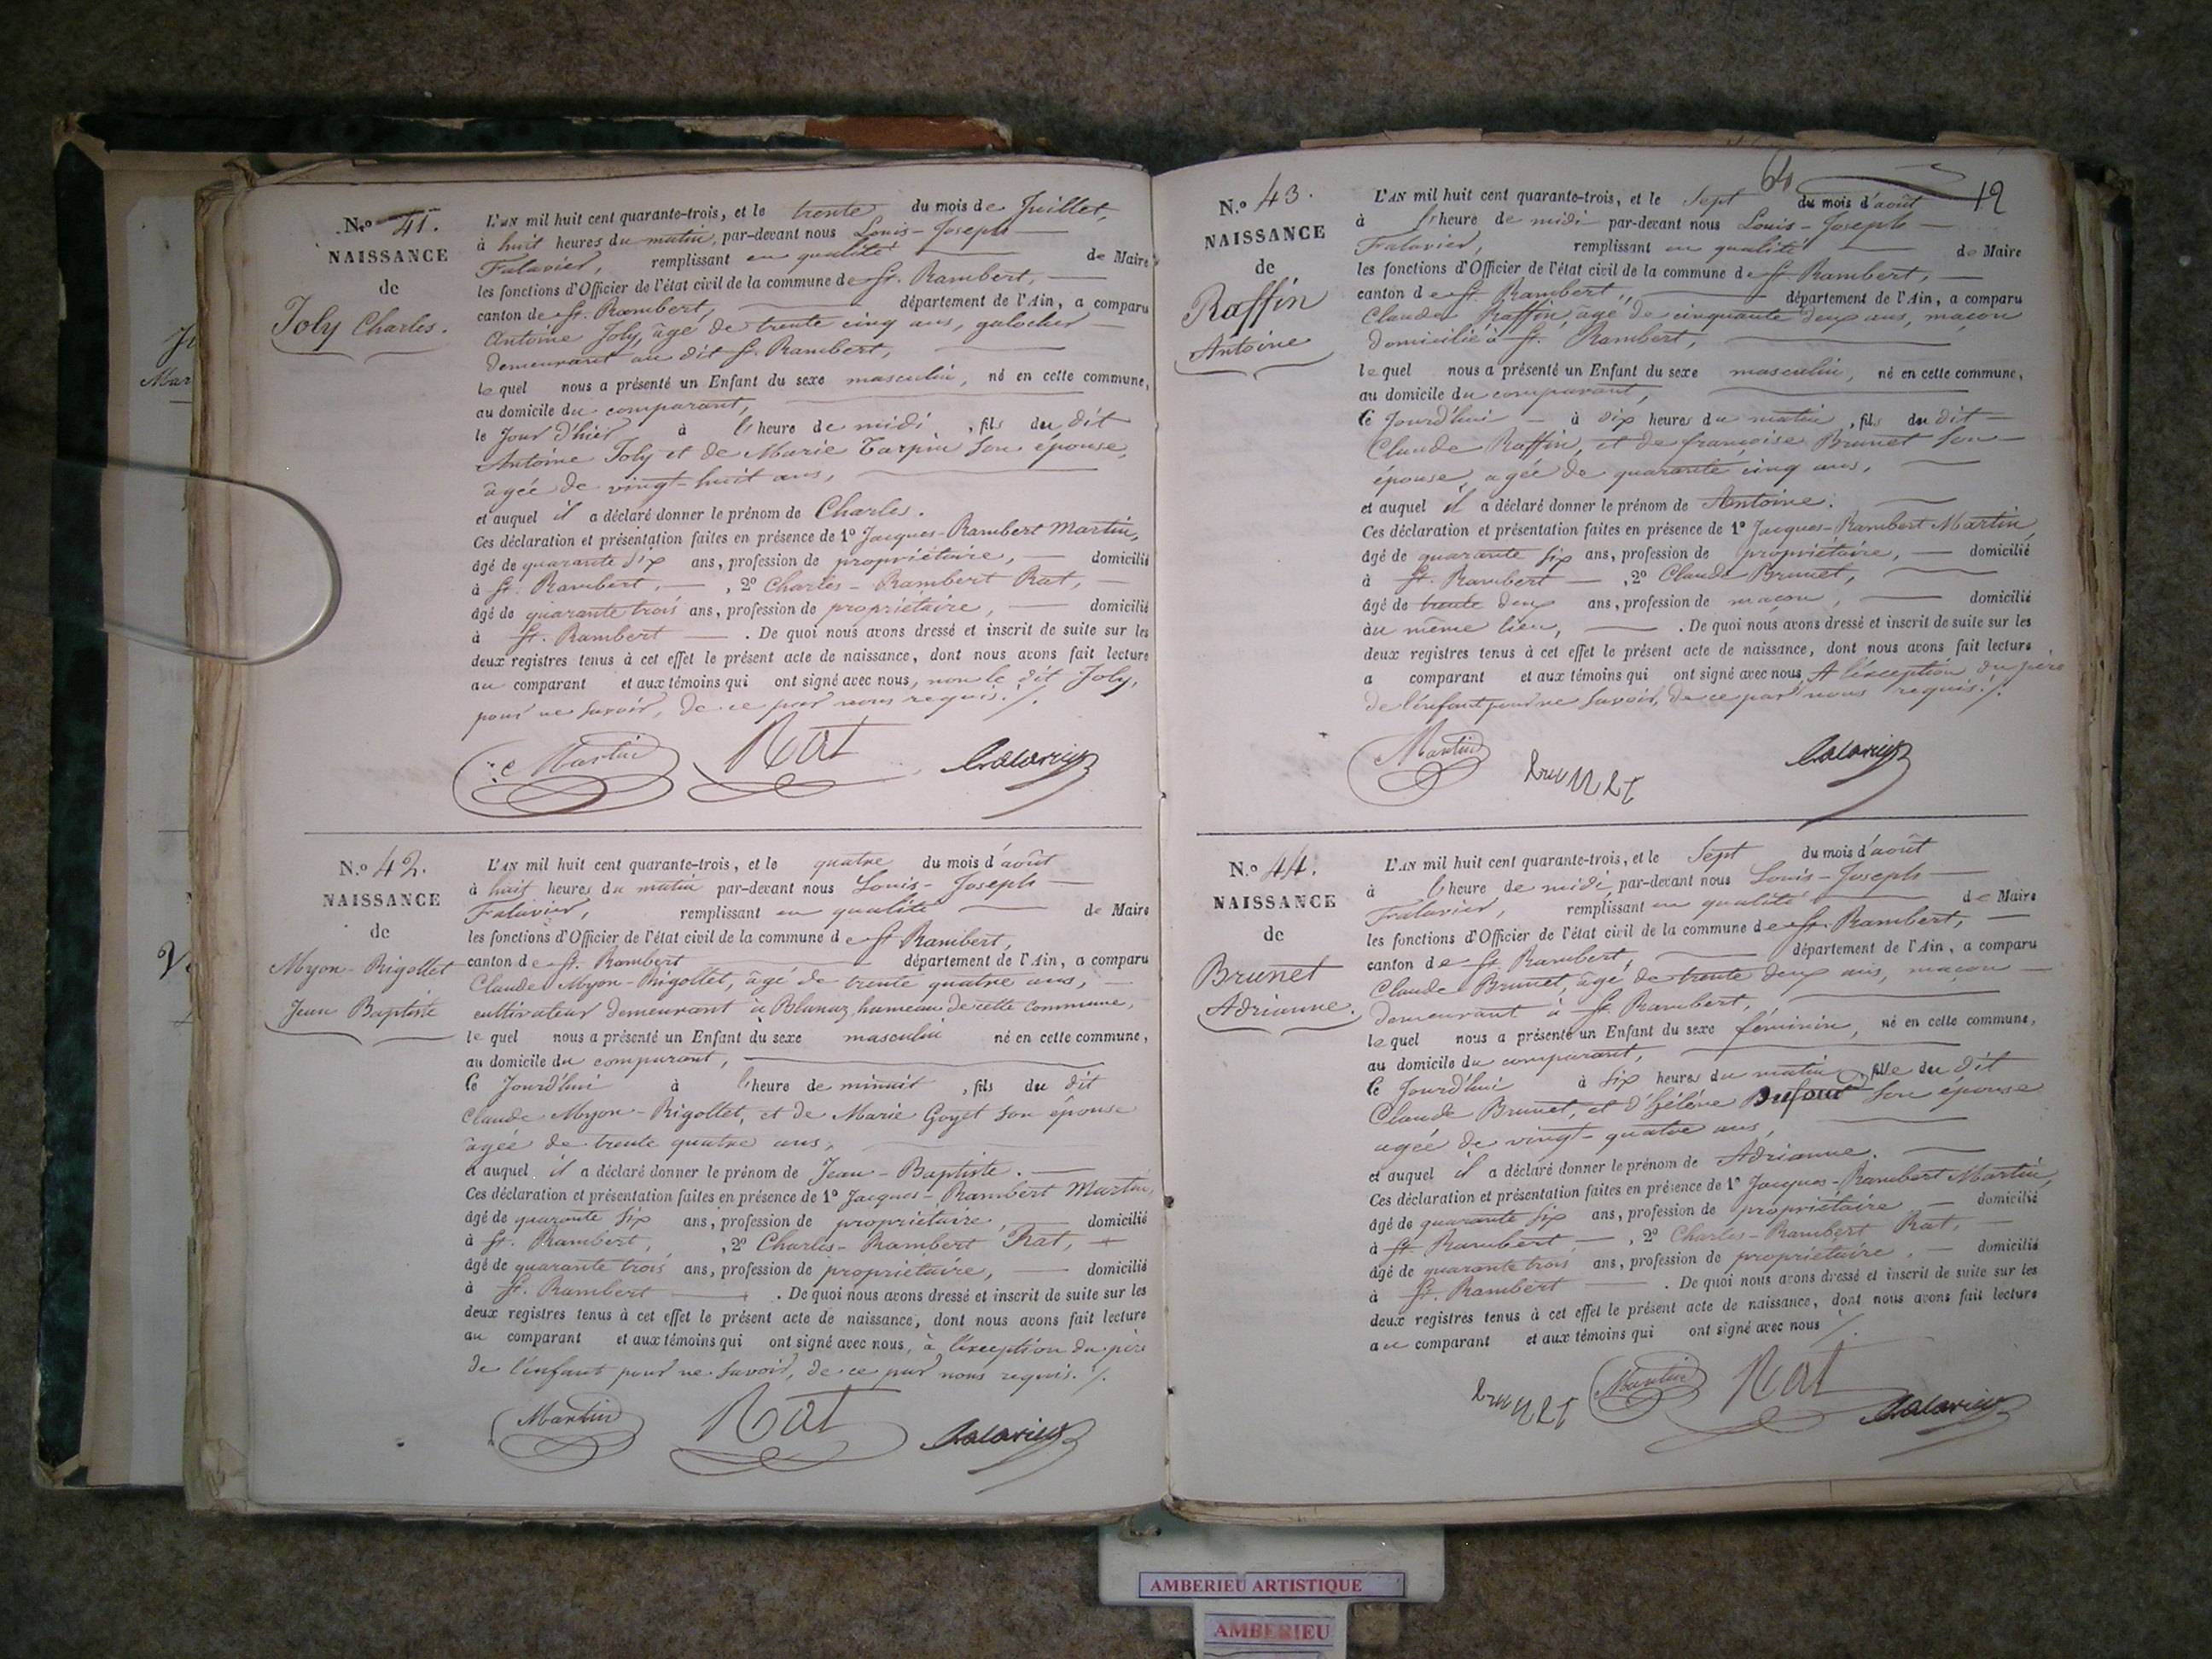 N.o 41.
NAISSANCE
de
Joly Charles.
L'AN mil huit cent quarante-trois, et le trente du mois de Juillet,
à huit heures du matin, par-devant nous Louis-Joseph
Falavier, remplissant en qualité de Maire
les fonctions d'Officier de l'état civil de la commune de St. Rambert,
canton de St. Rambert, département de l'Ain, a comparu
Antoine Joly, âgé de trente cinq ans, galocher
demeurant au dit St. Rambert,
lequel nous a présenté un Enfant du sexe masculin, né en cette commune,
au domicile du comparant,
le Jour d'hier à l'heure de midi, fils du dit
Antoine Joly et de Marie Tarpin son épouse,
âgée de vingt-huit ans,
et auquel il a déclaré donner le prénom de Charles.
Ces déclaration et présentation faites en présence de 1º Jacques-Rambert Martin,
âgé de quarante six ans, profession de propriétaire, domicilié
à St. Rambert, , 2º Charles-Rambert Rat,
âgé de quarante trois ans, profession de propriétaire, domicilié
à St. Rambert . De quoi nous avons dressé et inscrit de suite sur les
deux registres tenus à cet effet le présent acte de naissance, dont nous avons fait lecture
au comparant et aux témoins qui ont signé avec nous, non le dit Joly,
pour ne savoir, de ce par nous requis./.
Martin Rat Falavier
N.o 42.
NAISSANCE
de
Myon-Rigollet
Jean Baptiste
L'AN mil huit cent quarante-trois, et le quatre du mois d'août
à huit heures du matin par-devant nous Louis-Joseph
Falavier, remplissant en qualité de Maire
les fonctions d'Officier de l'état civil de la commune de St Rambert,
canton de St. Rambert département de l'Ain, a comparu
Claude Myon-Rigollet, âgé de trente quatre ans,
cultivateur demeurant à Blanaz, hameau de cette commune,
lequel nous a présenté un Enfant du sexe masculin né en cette commune,
au domicile du comparant,
Ce Jourd'hui à l'heure de minuit, fils du dit
Claude Myon-Rigollet, et de Marie Goyet son épouse
âgée de trente quatre ans,
et auquel il a déclaré donner le prénom de Jean-Baptiste.
Ces déclaration et présentation faites en présence de 1º Jacques-Rambert Martin,
âgé de quarante six ans, profession de propriétaire, domicilié
à St. Rambert, , 2º Charles-Rambert Rat,
âgé de quarante trois ans, profession de propriétaire, domicilié
à St. Rambert . De quoi nous avons dressé et inscrit de suite sur les
deux registres tenus à cet effet le présent acte de naissance, dont nous avons fait lecture
au comparant et aux témoins qui ont signé avec nous, à l'exception du père
de l'enfant pour ne savoir, de ce par nous requis./.
Martin Rat Falavier
12
N.o 43.
NAISSANCE
de
Raffin
Antoine
L'AN mil huit cent quarante-trois, et le Sept du mois d'août
à l'heure de midi par-devant nous Louis-Joseph
Falavier, remplissant en qualité de Maire
les fonctions d'Officier de l'état civil de la commune de St Rambert,
canton de St. Rambert, département de l'Ain, a comparu
Claude Raffin, âgé de cinquante deux ans, maçon
domicilié à St. Rambert,
lequel nous a présenté un Enfant du sexe masculin, né en cette commune,
au domicile du comparant,
Ce Jourd'hui à dix heures du matin, fils du dit
Claude Raffin, et de françoise Brunet son
épouse, agée de quarante cinq ans,
et auquel il a déclaré donner le prénom de Antoine.
Ces déclaration et présentation faites en présence de 1º Jacques-Rambert Martin,
âgé de quarante six ans, profession de propriétaire, domicilié
à St. Rambert , 2º Claude Brunet,
âgé de trente deux ans, profession de maçon, domicilié
au même lieu, . De quoi nous avons dressé et inscrit de suite sur les
deux registres tenus à cet effet le présent acte de naissance, dont nous avons fait lecture
a comparant et aux témoins qui ont signé avec nous A l'éxception du père
de l'enfant pour ne savoir, de ce par nous requis./.
Martin brunet Falavier
N.o 44.
NAISSANCE
de
Brunet
Adrianne.
L'AN mil huit cent quarante-trois, et le Sept du mois d'août
à l'heure de midi, par-devant nous Louis-Joseph
Falavier, remplissant en qualité de Maire
les fonctions d'Officier de l'état civil de la commune de St. Rambert,
canton de St Rambert, département de l'Ain, a comparu
Claude Brunet, âgé de trente deux ans, maçon
demeurant à St. Rambert,
lequel nous a présenté un Enfant du sexe féminin, né en cette commune,
au domicile du comparant,
Ce Jourd'hui à six heures du matin, fille du dit
Claude Brunet, et d'hélène Dufour son épouse
agée de vingt-quatre ans,
et auquel il a déclaré donner le prénom de Adrianne.
Ces déclaration et présentation faites en présence de 1º Jacques-Rambert Martin,
âgé de quarante six ans, profession de propriétaire domicilié
à St. Rambert, , 2º Charles-Rambert Rat,
âgé de quarante trois ans, profession de propriétaire, domicilié
à St. Rambert . De quoi nous avons dressé et inscrit de suite sur les
deux registres tenus à cet effet le présent acte de naissance, dont nous avons fait lecture
au comparant et aux témoins qui ont signé avec nous /.
brunet Martin Rat Falavier
AMBERIEU ARTISTIQUE
AMBERIEU